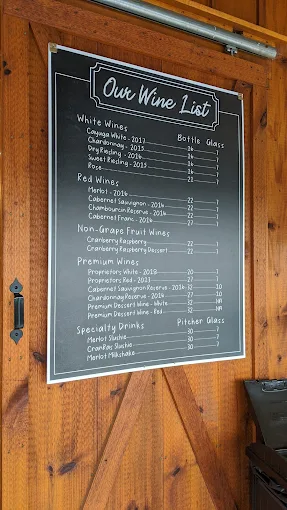 Our Wine List
White Wines Bottle Glass
Cayuga White - 2017 16 7
Chardonnay - 2015 16 7
Dry Riesling - 2016 16 7
Sweet Riesling - 2015 16 7
Rose 22 7
Red Wines
Merlot - 2016 22 7
Cabernet Sauvignon - 2016 22 7
Chambourcin Reserve - 2016 22 7
Cabernet Franc - 2016 27 7
Non-Grape Fruit Wines
Cranberry Raspberry 22 7
Cranberry Raspberry Dessert 22 7
Premium Wines
Proprietors White - 2018 20 7
Proprietors Red - 2013 27 7
Cabernet Sauvignon Reserve - 2016 32 10
Chardonnay Reserve - 2016 27 10
Premium Dessert Wine - White 32 NA
Premium Dessert Wine - Red 32 NA
Specialty Drinks Pitcher Glass
Merlot Slushie 30 7
CranRas Slushie 30 7
Merlot Milkshake 30 7